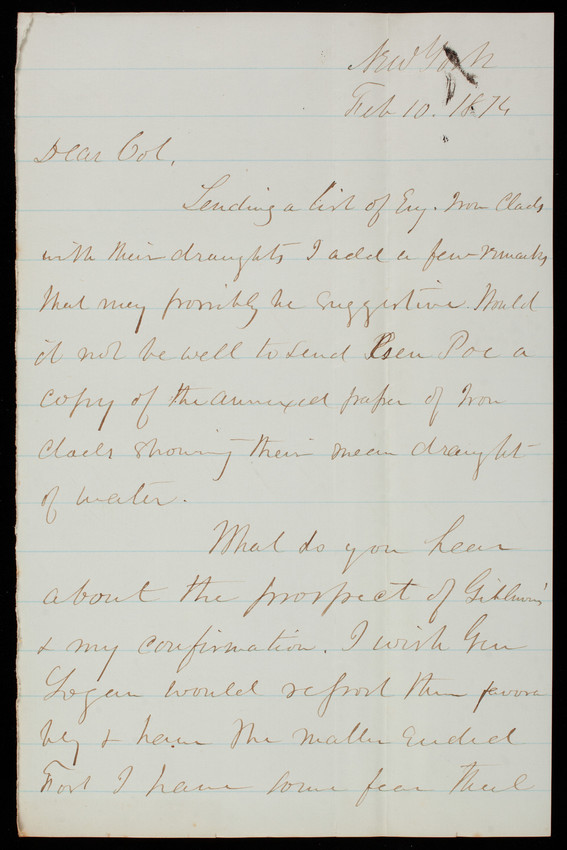 New York
Feb 10. 1874
Dear Col,
Sending a list of Eng. Iron Clads
with their draughts I add a few remarks
that may possibly be suggestive. Would
it not be well to send Poe a
copy of the annexed paper of Iron
clads showing their mean draught
of water.
What do you hear
about the prospect of Gillmore's
& my confirmation. I wish Gen
Logan would report them favora
bly & have the matter ended
For I have some fear that